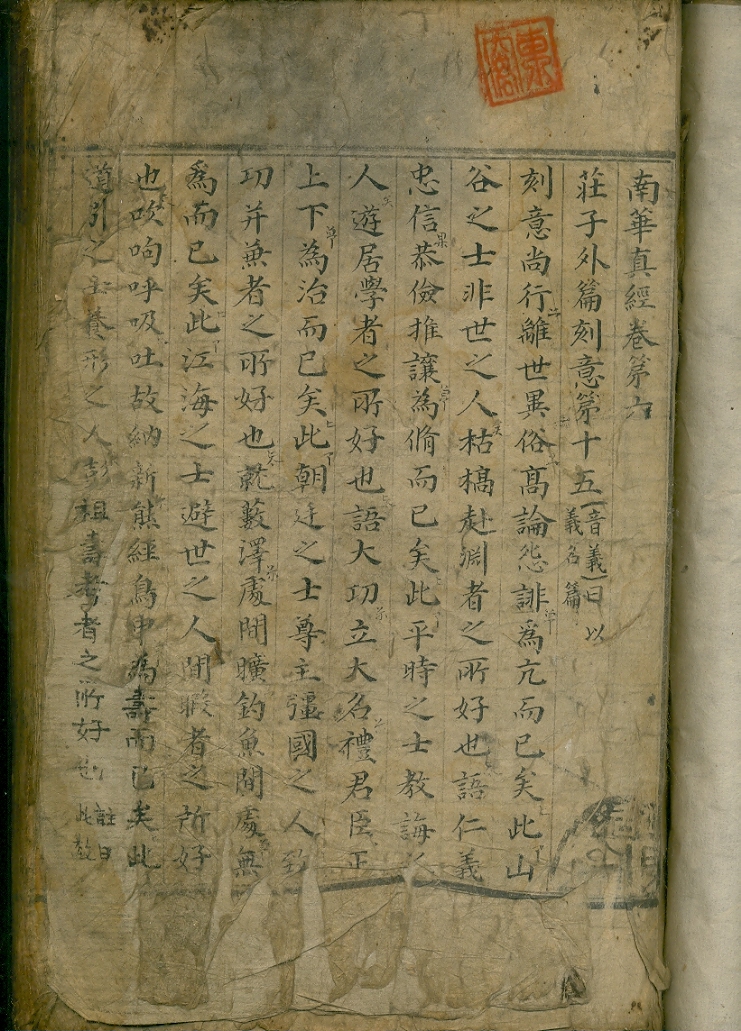 南華真經卷第六
莊子外篇刻意第十五音義曰以義名篇
刻意尚行離世異俗高論怨誹爲亢而已矣此山
谷之士非世之人枯槁赴淵者之所好也語仁義
忠信恭儉推讓為脩而已矣此平時之士教誨
人遊居學者之所好也語大功立大名禮君臣正
上下為治而已矣此朝廷之士尊主彊國之人致
功并兼者之所好也就藪澤處閒曠釣魚閒處無
爲而已矣此江海之士避世之人閒暇者之所好
也吹呴呼吸吐故納新熊經鳥申為壽而已矣此
道引之士養形之人彭祖壽考者之所好也註曰此數